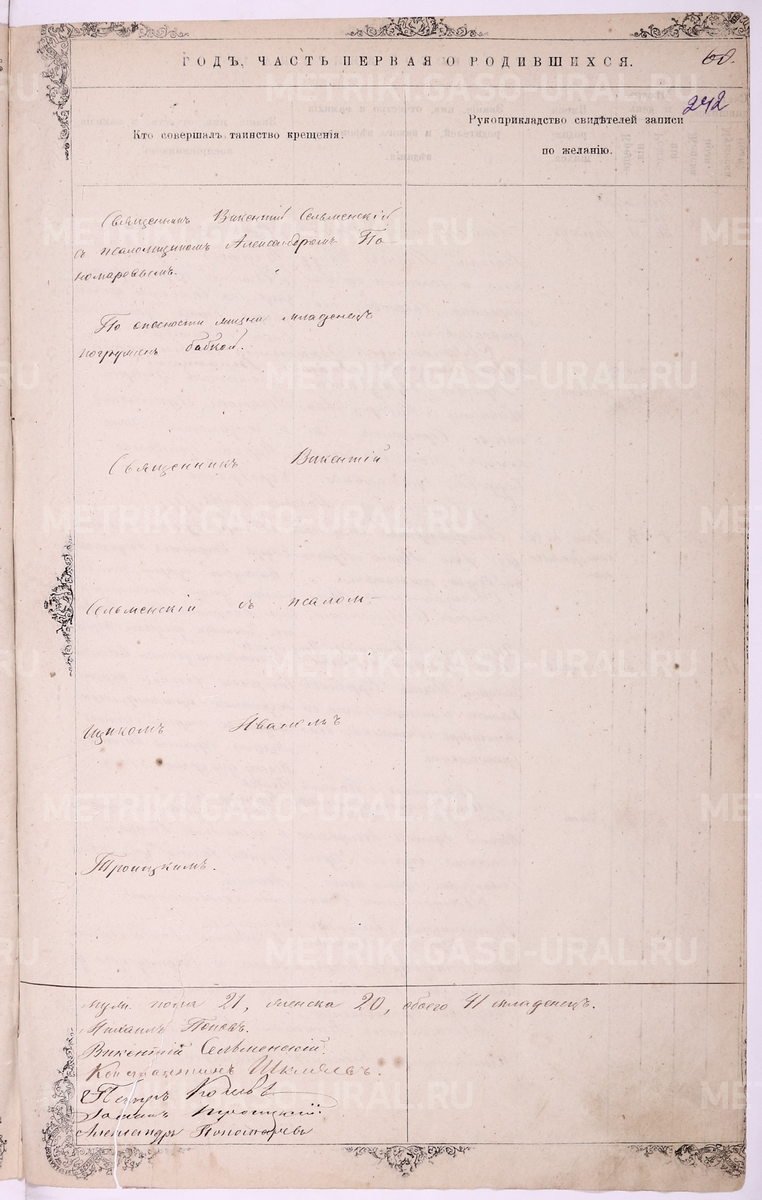 ГОДЪ, ЧАСТЬ ПЕРВАЯ О РОДИВШИХСЯ.
242
Кто совершалъ таинство крещенія.
Рукоприкладство свидѣтелей записи
по желанію.
Священникъ Викентій Сельменскій
съ псаломщикомъ Александромъ По
номаревымъ.
По опасности жизни младенецъ
погруженъ бабкой.
Священникъ Викентій
Сельменскій съ псалом-
щикомъ Иваномъ
Троицкимъ.
муж. пола 21, женска 20, обоего 41 младенецъ.
Михаилъ Поповъ.
Викентій Сельменскій.
Константинъ
Петръ
Троицкій.
Александръ Пономаревъ
METRIKI.GASO-URAL.RU